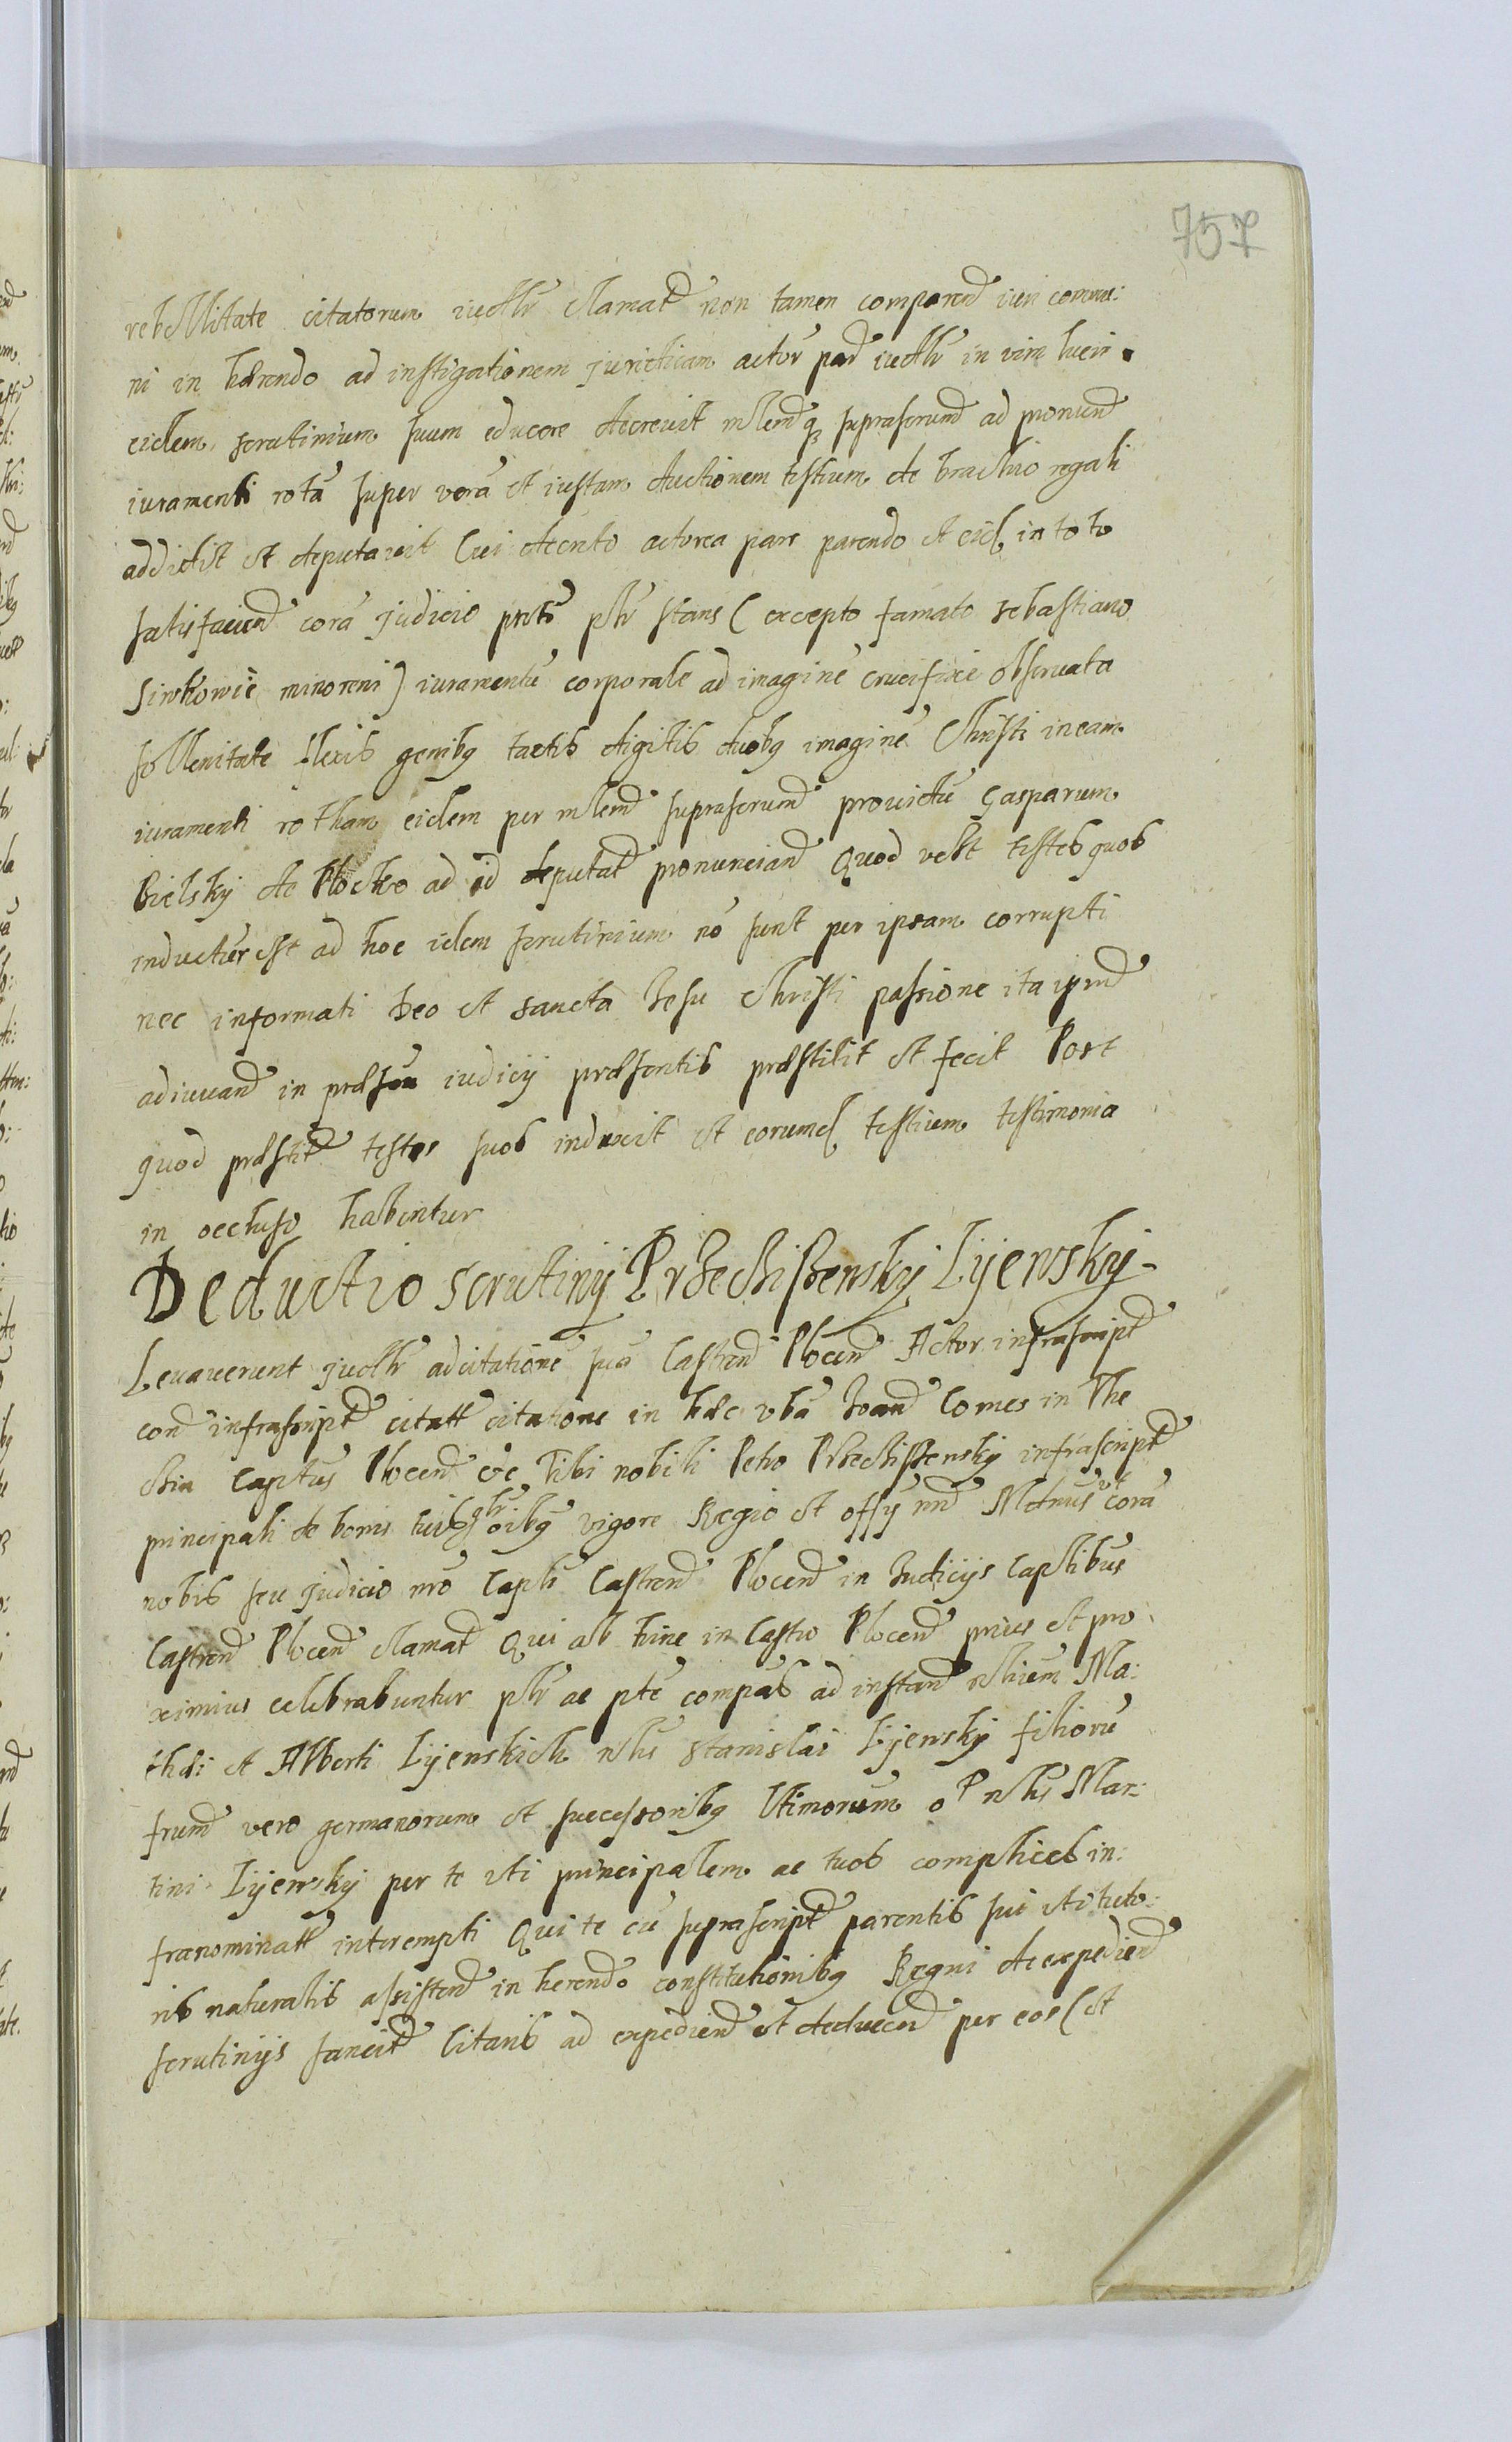 757
rebellitate citatorum iudlr clamat non tamen comparend iuri commu:
ni in hærendo ad instigationem juridicam actor par iudlr in vim lucri
eidem scrutinium suum educere decrevit mlemq suprascrund ad pronund
iuramenti rotā super verā et iustam ductionem testium de brachio regali
addidit et deputavit Cui decreto actorea pars parendo et eid in toto
satisfaciend corā judicio pntē plr stans (excepto famato Sebastiano
Sinkowic minoreni) iuramentū corporale ad imaginē crucifixi observata
sollenitate flexis genibq tactis digitis duobq imaginē Christi in eam
iuramenti rotham eidem per mlemd suprascrund providū Gasparum
Bielsky de Plocko ad id deputat pronunciand Quod velt testes quos
inductur est ad hoc idem scrutinium nō sunt per ipsam corrupti
nec informati Deo et sancta Jesu Christi passione ita ipsud
adiuvand in præsen iudicij præsentis præstitit et fecit Post
quod præstit testes suos induxit et eorumd testium testimonia
in occluso habentur
Deductio scrutinij Przechiszewsky Lijewsky
Levaverunt judlr ad citationē suā Castrend Plocen Actor infrascript
cond infrascript citatt citatione in hæc vbā Joand Comes in The
chin Captus Plocend &c Tibi nobili Petro Przechiszewsky infrascript
principali de bonis tuis glr oibq vigore Regio et offy nrd Mdmus vt corā
nobis seu judicio nrō Caplr Castrend Plocend in Judicijs Caplibus
Castrend Plocend clamat Qui ab hinc in Castro Plocend prius et pro
ximius celebrabuntur plr ac ptē compas ad instand nlium Ma:
thæi et Alberti Lijewskich nlis Stanislai Lijewsky filiorū
frumd vero germanorum et successoribq Vltimorum oP nlis Mar:
tini Lijewsky per te vti principalem ac tuos complices in:
franominatt interempti Qui te cū suprascript parentis sui vti tuto:
ris naturalis assistend in herendo constitutionibq Regni de expediend
scrutinijs sancit Citans ad expediend et deducend per eos (et